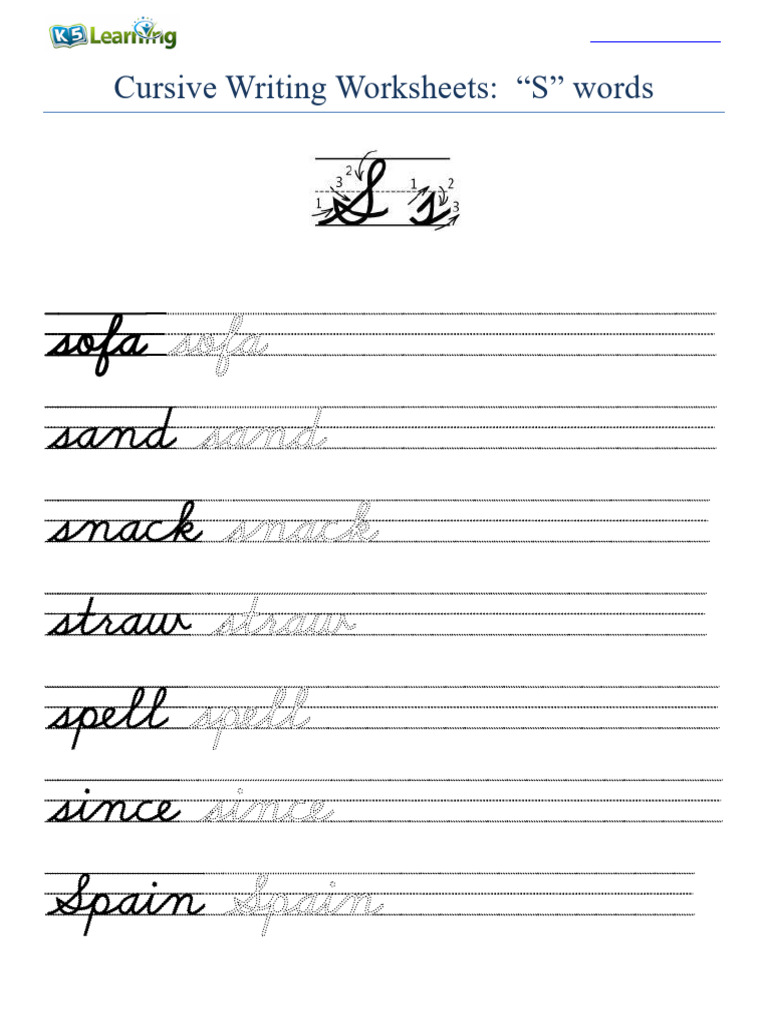 K5 Learning
Cursive Writing Worksheets: “S” words
1 3 2 1 2 3
S s
sofa sofa
sand sand
snack snack
straw straw
spell spell
since since
Spain Spain